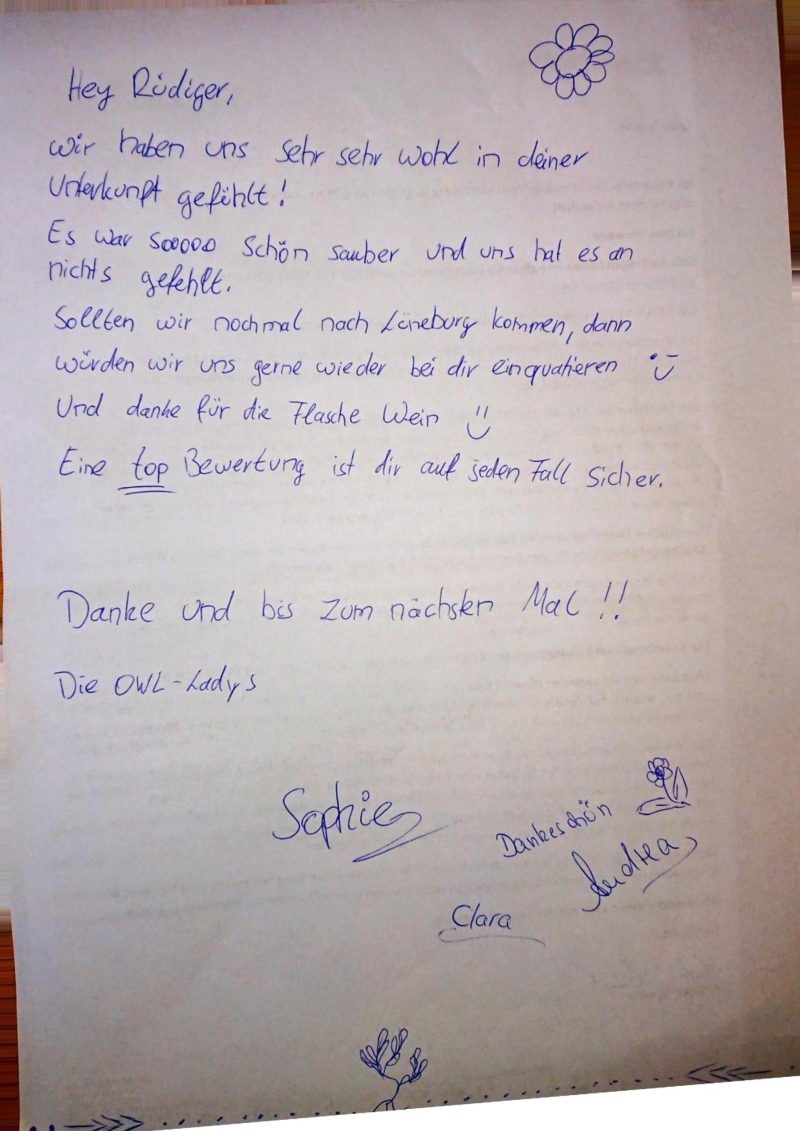 Hey Rüdiger,
wir haben uns sehr sehr wohl in deiner
Unterkunft gefühlt!
Es war sooooo schön sauber und uns hat es an
nichts gefehlt.
Sollten wir nochmal nach Lüneburg kommen, dann
würden wir uns gerne wieder bei dir einquatieren
Und danke für die Flasche Wein
Eine top Bewertung ist dir auf jeden Fall sicher.
Danke und bis zum nächsten Mal!!
Die OWL-Ladys
Sophie
Dankeschön
Andrea
Clara